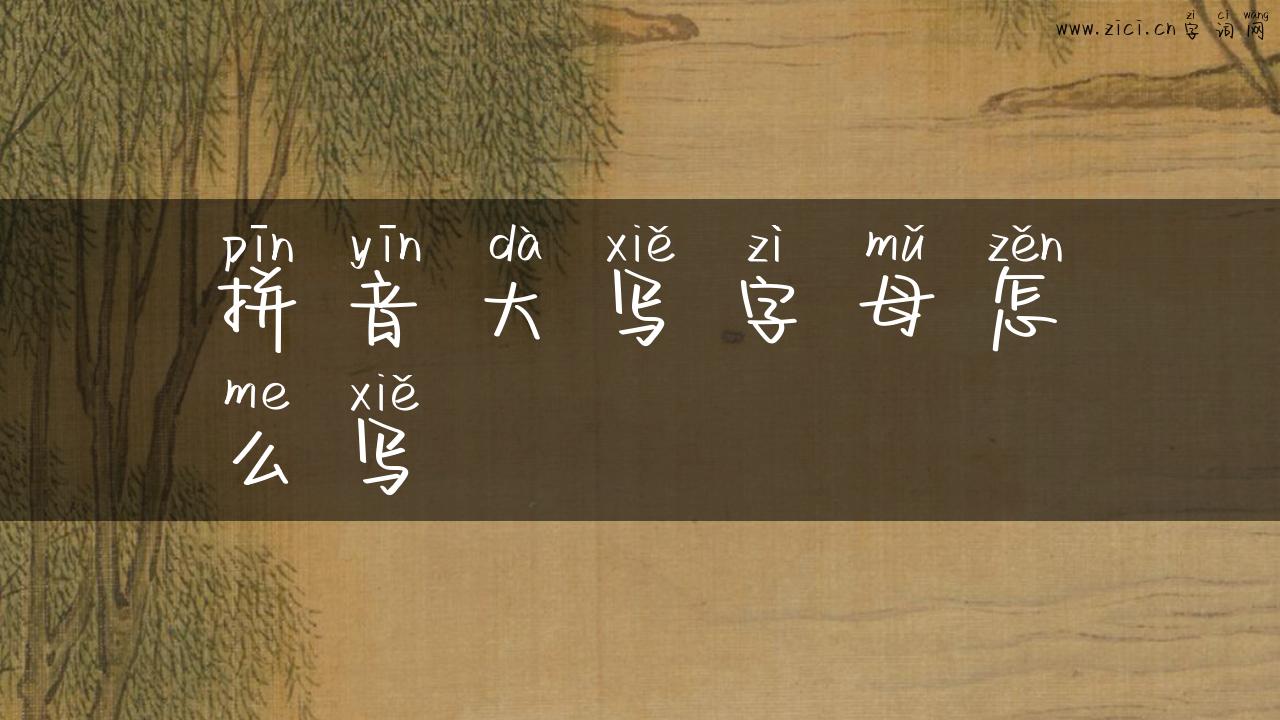 zì cí wǎng
www.zici.cn 字词网
pīn yīn dà xiě zì mǔ zěn
拼音大写字母怎
me xiě
么写